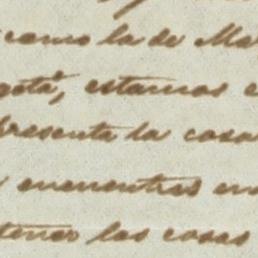 como la de Ma
gotá, estamos e
presenta la cosa
encuentras en
tener las cosas